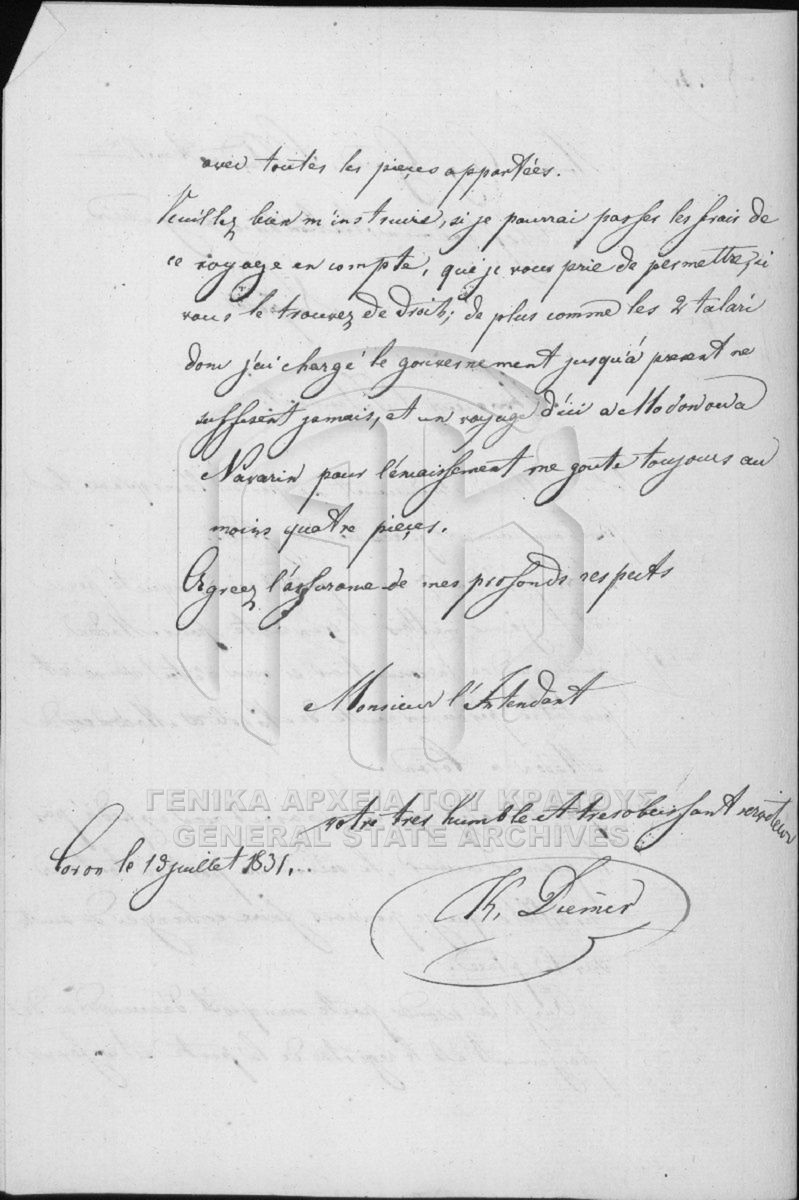 avec toutes les pieçes apportées.
Veuillez bien m'instruire, si je pourrai passer les frais de
ce voyage en compte, que je vous prie de permettre, si
vous le trouvez de Droit; de plus comme les 2 talari
dont j'ai chargé le gouvernement jusqu'á present ne
suffisent jamais, et un voyage d'ici a Modon ou a
Navarin pour l'encaissement me goute toujours au
moins quatre pieçes.
Agreez l'assurance de mes profonds respects
Monsieur l'Intendant
votre tres humble et tres obeissant serviteur
Coron le 19 juillet 1831.
K. Diemer
ΓΕΝΙΚΑ ΑΡΧΕΙΑ ΤΟΥ ΚΡΑΤΟΥΣ
GENERAL STATE ARCHIVES